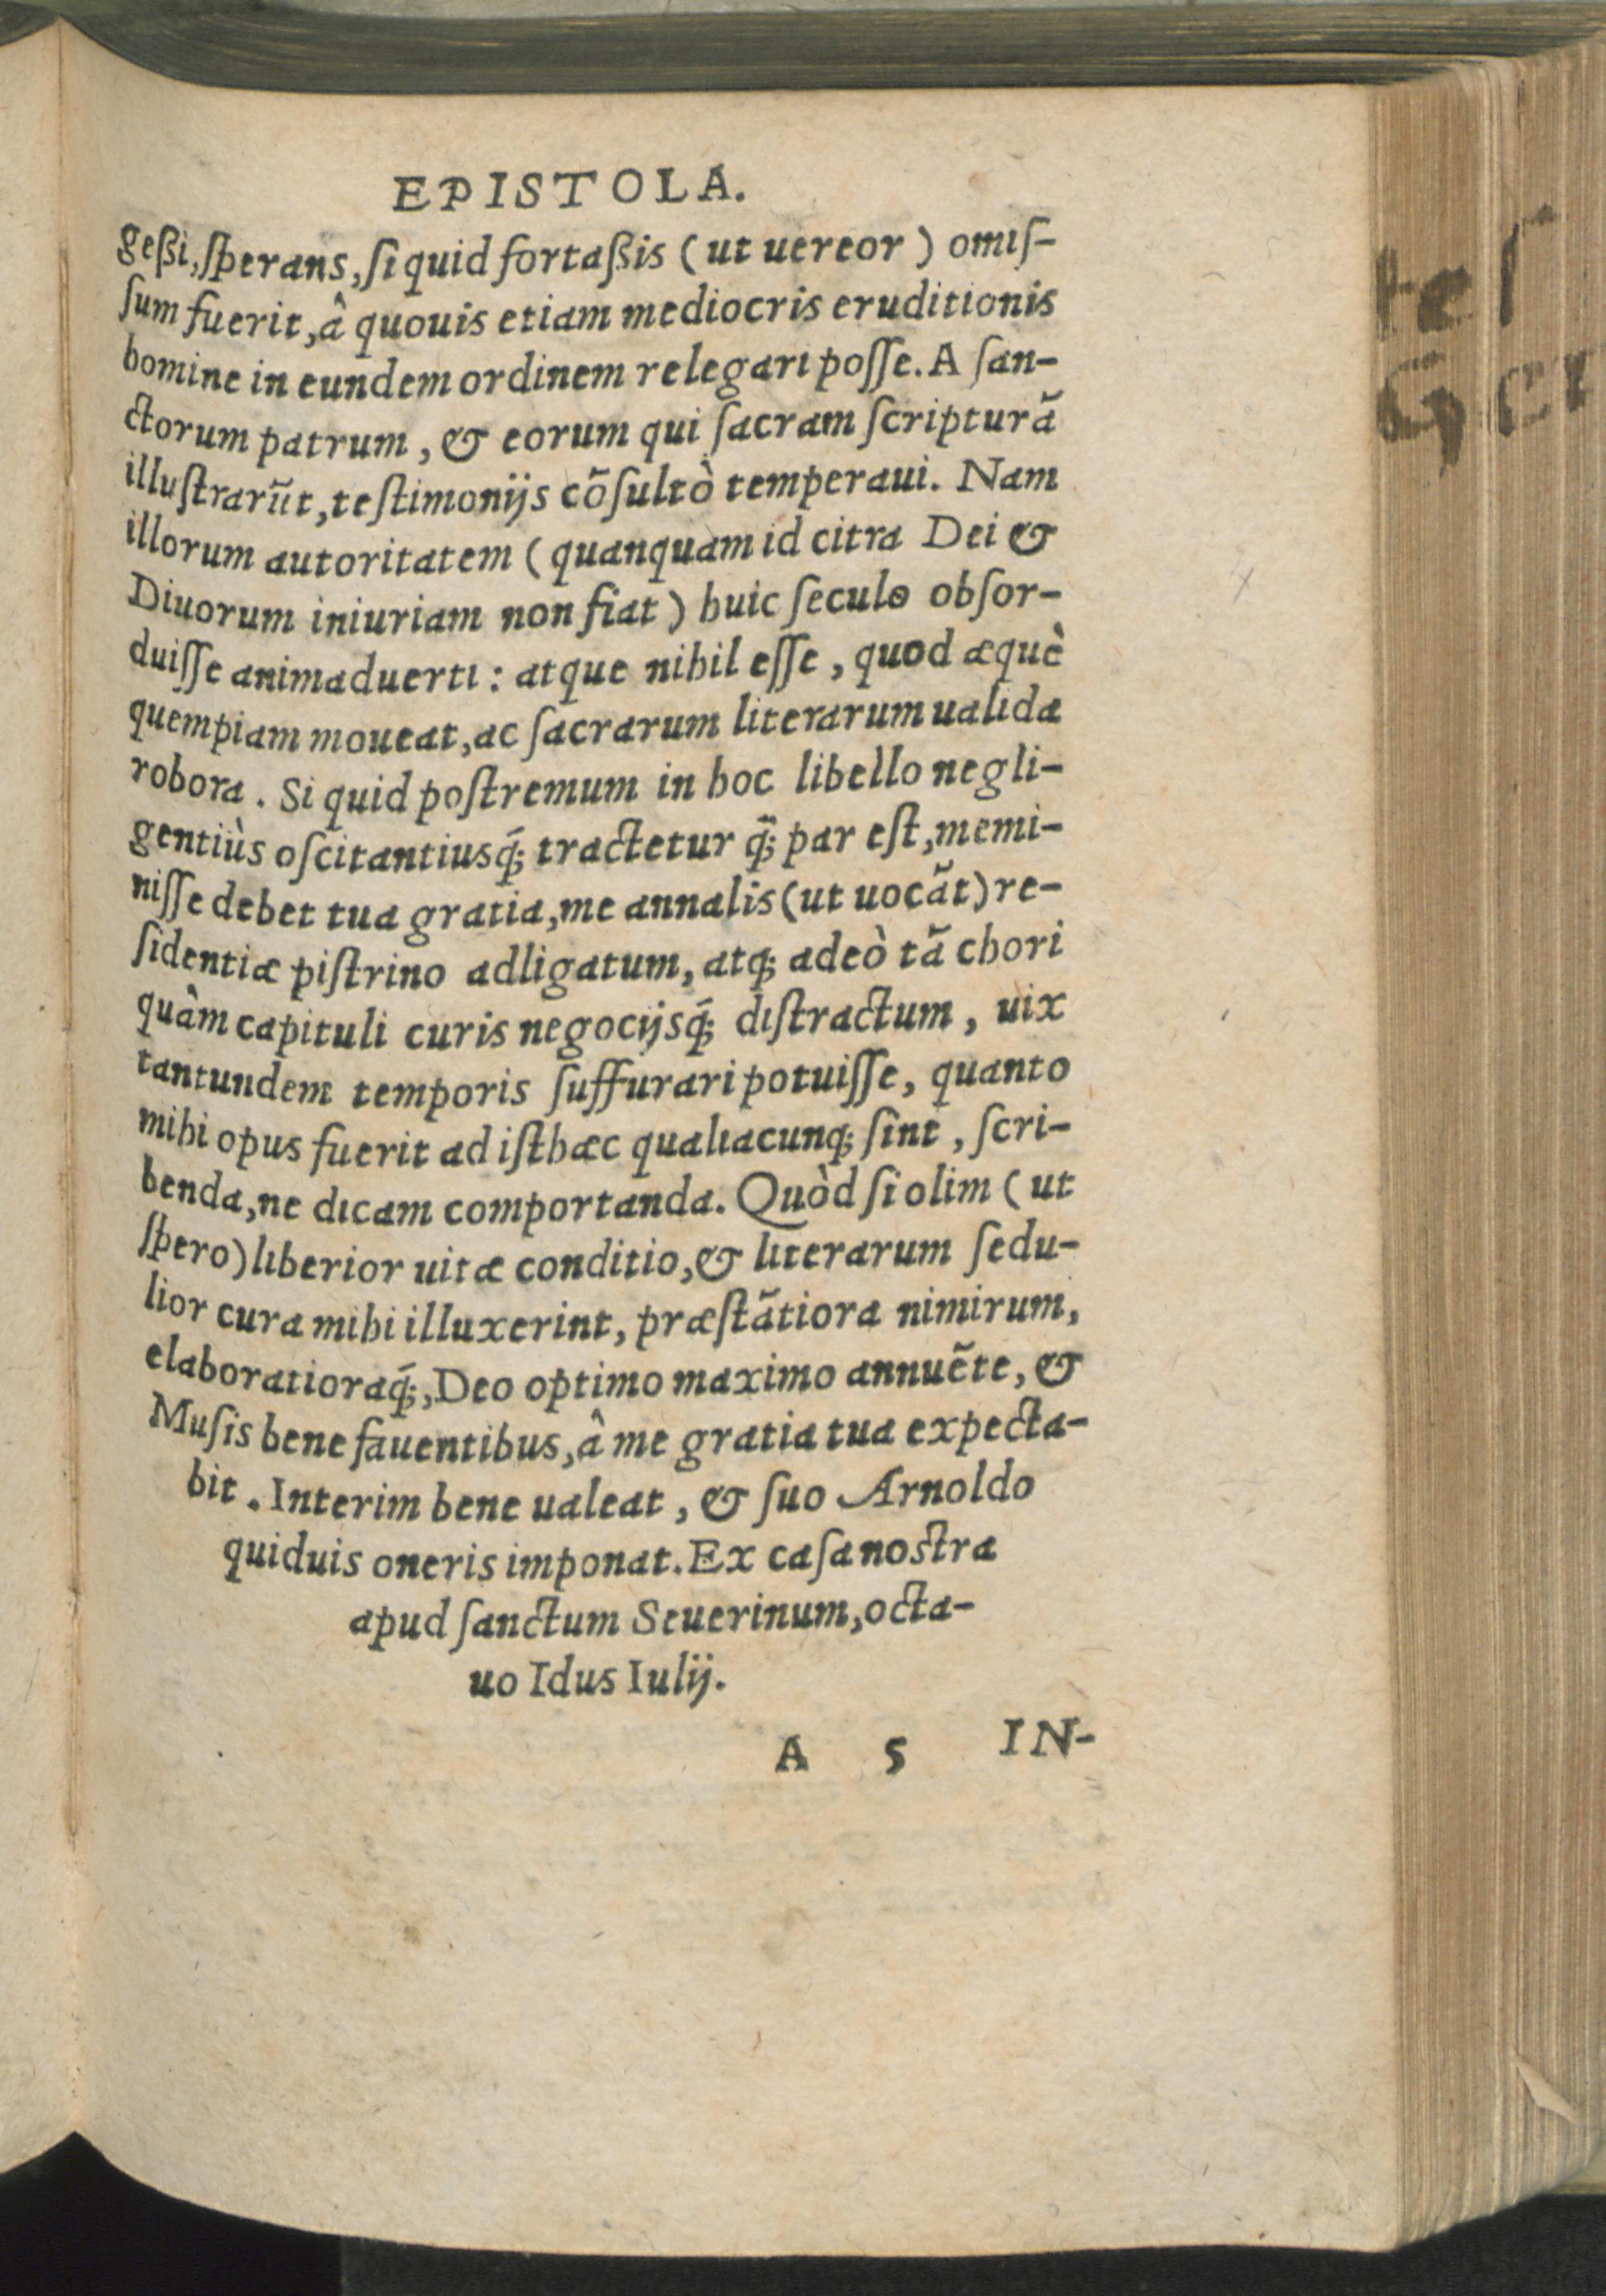 EPISTOLA.
geßi, ſperans, ſi quid fortaßis (ut uereor) omiſ-
ſum fuerit, â quouis etiam mediocris eruditionis
homine in eundem ordinem relegari poſſe. A ſan-
ctorum patrum, & eorum qui ſacram ſcripturã
illuſtrarũt, teſtimonijs cõſultò temperaui. Nam
illorum autoritatem (quanquam id citra Dei &
Diuorum iniuriam non fiat) huic ſeculo obſor-
duiſſe animaduerti: atque nihil eſſe, quod æquè
quempiam moueat, ac ſacrarum literarum ualida
robora. Si quid poſtremum in hoc libello negli-
gentiùs oſcitantiusq́; tractetur q̃; par eſt, memi-
niſſe debet tua gratia, me annalis (ut uocãt) re-
ſidentiæ piſtrino adligatum, atq; adeò tã chori
quàm capituli curis negocijsq́; diſtractum, uix
tantundem temporis ſuffurari potuiſſe, quanto
mihi opus fuerit ad iſthæc qualiacunq; ſint, ſcri-
benda, ne dicam comportanda. Quòd ſi olim (ut
ſpero) liberior uitæ conditio, & literarum ſedu-
lior cura mihi illuxerint, præſtãtiora nimirum,
elaboratioraq́;, Deo optimo maximo annuẽte, &
Muſis bene fauentibus, â me gratia tua expecta-
bit. Interim bene ualeat, & ſuo Arnoldo
quiduis oneris imponat. Ex caſa noſtra
apud ſanctum Seuerinum, octa-
uo Idus Iulij.
A 5 IN-